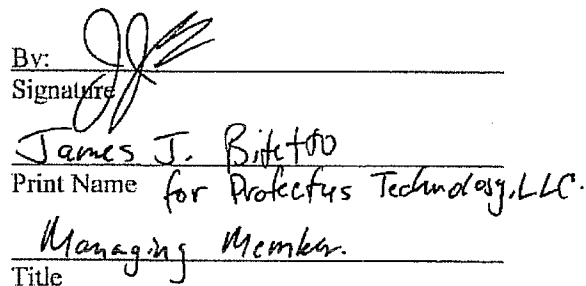 By:
Signature
James J. Bitetto
Print Name for Protectus Technology, LLC.
Managing Member.
Title